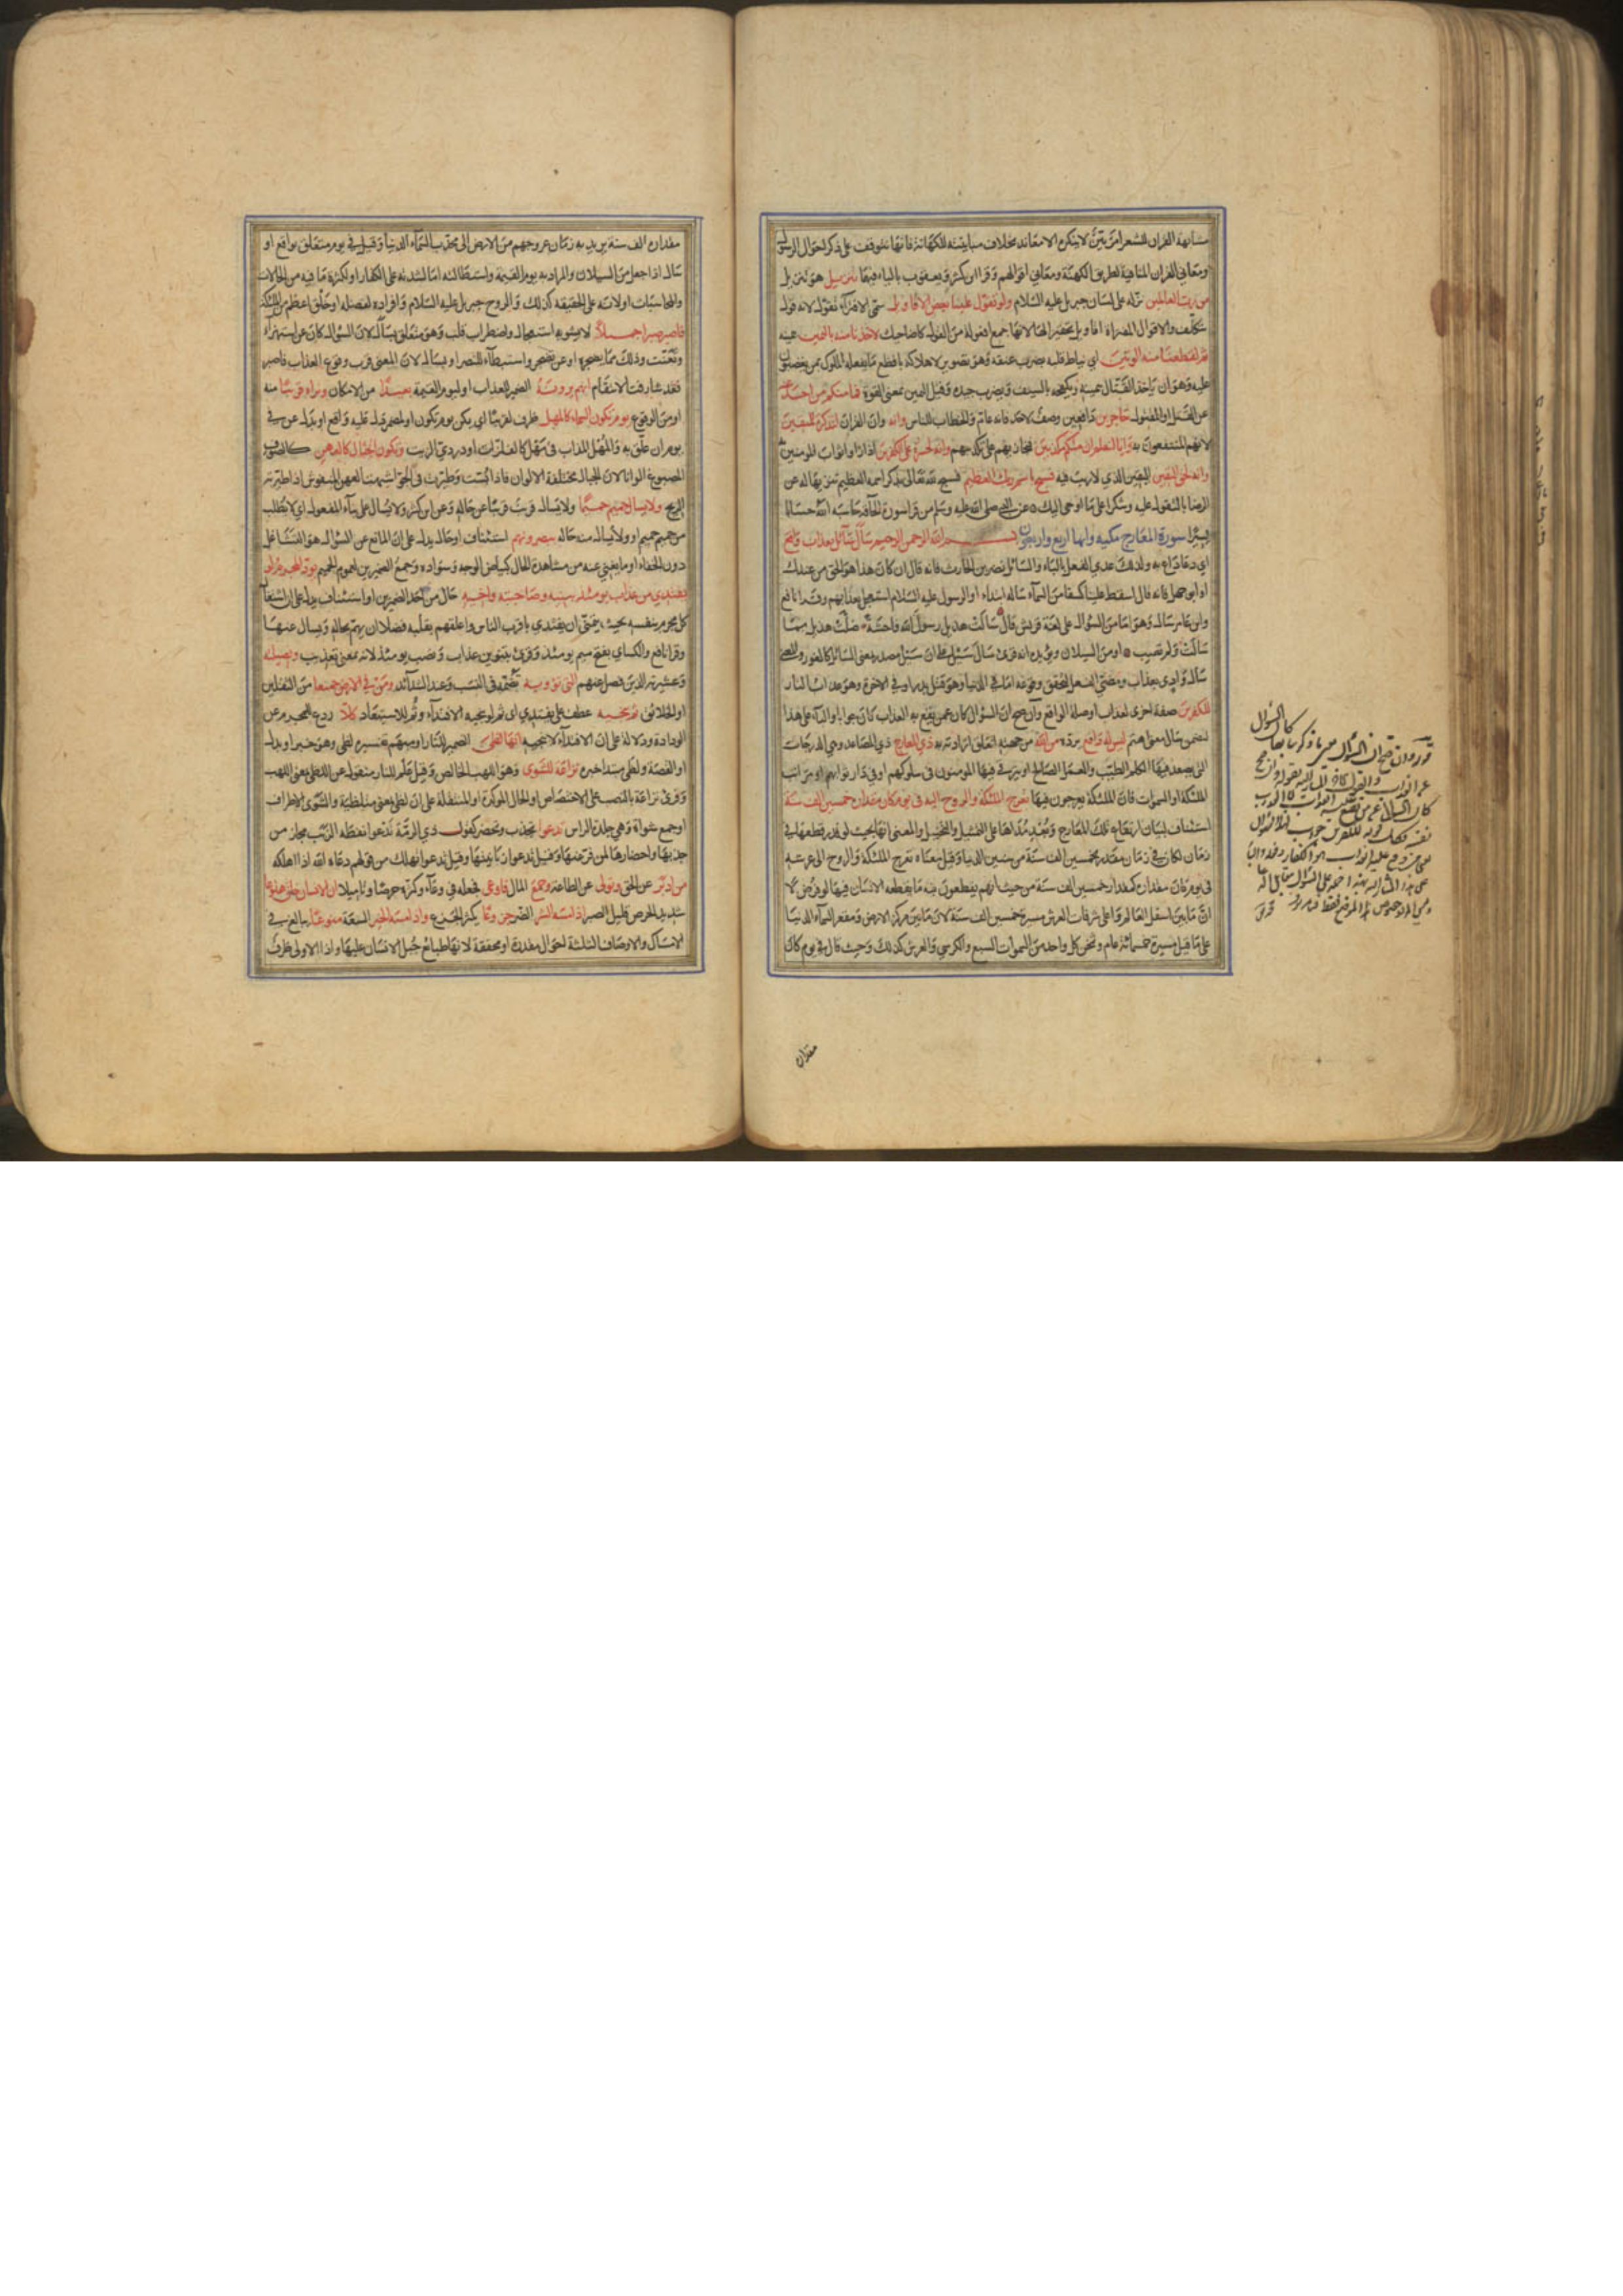 مشابهة القران للشعر امر بيّن لا ينكره الا معاند بخلاف مباينته للكهانة فانها تتوقف على تذكر احوال الرسول
ومعاني القران المنافية لطريق الكهنة ومعاني اقوالهم وقرا ابن كثير ويعقوب بالياء فيهما تنزيل هو تنزيل
من رب العالمين نزله على لسان جبريل عليه السلام ولو تقول علينا بعض الاقاويل سمى الافتراء تقولا لانه قول
متكلف والاقوال المفتراة اقاويل تحقيرا لها كانها جمع افعولة من القول كالاضاحيك لاخذنا منه باليمين بيمينه
ثم لقطعنا منه الوتين اي نياط قلبه بضرب عنقه وهو تصوير لاهلاكه بافظع ما يفعله الملوك بمن يغضبون
عليه وهو ان ياخذ القتال بيمينه ويكفحه بالسيف ويضرب جيده وقيل اليمين بمعنى القوة فما منكم من احد عنه
عن القتل او المقتول حاجزين دافعين وصف لاحد فانه عام والخطاب للناس وانه وان القران لتذكرة للمتقين
لانهم المنتفعون به وانا لنعلم ان منكم مكذبين فنجازيهم على تكذيبهم وانه لحسرة على الكفرين اذا راوا ثواب المومنين
وانه لحق اليقين لليقين الذي لا ريب فيه فسبح باسم ربك العظيم فسبح لله تعالى بذكر اسمه العظيم تنزيها له عن
الرضا بالتقول عليه وشكرا على ما اوحي اليك ٥ عن النبي صلى الله عليه وسلم من قرا سورة الحاقة حاسبه الله حسابا
يسيرا سورة المعارج مكية وايها اربع واربعون بسم الله الرحمن الرحيم سال سائل بعذاب واقع
اي دعا داع به ولذلك عدي الفعل بالباء والسائل نضر بن الحارث فانه قال ان كان هذا هو الحق من عندك
او ابو جهل فانه قال اسقط علينا كسفا من السماء ساله استهزاء او الرسول عليه السلام استعجل بعذابهم وقرا نافع
وابن عامر سال وهو اما من السؤال على لغة قريش قال سالت هذيل رسول الله فاحشة ٥ ضلت هذيل بما
سالت ولم تصب ٥ او من السيلان ويؤيده انه قرئ سال سيل على ان السيل مصدر بمعنى السائل كالغور والمعنى
سال واد بعذاب ومضي الفعل لتحقق وقوعه اما في الدنيا وهو قتل بدر او في الاخرة وهو عذاب النار
للكفرين صفة اخرى لعذاب او صلة لواقع وان صح ان السؤال كان عمن يقع به العذاب كان جوابا والباء على هذا
لتضمن سال معنى اهتم ليس له دافع يرده من الله من جهته لتعلق ارادته به ذي المعارج ذي المصاعد وهي الدرجات
التي يصعد فيها الكلم الطيب والعمل الصالح او يترقى فيها المومنون في سلوكهم او في دار ثوابهم او مراتب
الملئكة او السموات فان الملئكة يعرجون فيها تعرج الملئكة والروح اليه في يوم كان مقداره خمسين الف سنة
استئناف لبيان ارتفاع تلك المعارج وبعد مداها على التمثيل والتخييل والمعنى انها بحيث لو قدر قطعها في
زمان لكان في زمان مقدر بخمسين الف سنة من سنين الدنيا وقيل معناه تعرج الملئكة والروح الى عرشه
في يوم كان مقداره كمقدار خمسين الف سنة من حيث انهم يقطعون فيه ما يقطعه الانسان فيها لو فرض لا
ان ما بين اسفل العالم واعلى شرفات العرش مسيرة خمسين الف سنة لان ما بين مركز الارض ومقعر السماء الدنيا
على ما قيل مسيرة خمسمائة عام وثخن كل واحد من السموات السبع والكرسي والعرش كذلك وحيث قال في يوم كان
مقداره
مقداره الف سنة يريد به زمان عروجهم من الارض الى محدب السماء الدنيا وقيل في يوم متعلق بواقع او
سال اذا جعل من السيلان والمراد به يوم القيمة واستطالته اما لشدته على الكفار او لكثرة ما فيه من الحالات
والمحاسبات او لانه على الحقيقة كذلك والروح جبريل عليه السلام وافراده لفضله او خلق اعظم من الملئكة
فاصبر صبرا جميلا لا يشوبه استعجال واضطراب قلب وهو متعلق بسال لان السؤال كان عن استهزاء
وتعنت وذلك مما يضجره او عن تضجر واستبطاء للنصر او بسال لان المعنى قرب وقوع العذاب فاصبر
فقد شارفت الانتقام انهم يرونه الضمير للعذاب او ليوم القيمة بعيدا من الامكان ونراه قريبا منه
او من الوقوع يوم تكون السماء كالمهل ظرف لقريبا اي يمكن يوم تكون او لمضمر دل عليه واقع او بدل عن في
يوم ان علق به والمهل المذاب في مهل كالفلزات او دردي الزيت وتكون الجبال كالعهن كالصوف
المصبوغ الوانا لان الجبال مختلفة الالوان فاذا بست وطيرت في الجو اشبهت العهن المنفوش اذا طيرته
الريح ولا يسال حميم حميما ولا يسال قريب قريبا عن حاله وعن ابن كثير ولا يسال على بناء المفعول اي لا يطلب
من حميم حميم او ولا يسال منه حاله يبصرونهم استئناف او حال يدل على ان المانع عن السؤال هو التشاغل
دون الخفاء او ما يغني عنه من مشاهدة الحال كبياض الوجه وسواده وجمع الضميرين لعموم الحميم يود المجرم لو
يفتدي من عذاب يومئذ ببنيه وصاحبته واخيه حال من احد الضميرين او استئناف يدل على ان اشتغال
كل مجرم بنفسه بحيث يتمنى ان يفتدي باقرب الناس واعلقهم بقلبه فضلا ان يهتم بحاله ويسال عنها
وقرا نافع والكساي بفتح ميم يومئذ وقرئ بتنوين عذاب ونصب يومئذ لانه بمعنى تعذيب وفصيلته
وعشيرته الذين فصل عنهم التي تؤويه تضمه في النسب وعند الشدائد ومن في الارض جميعا من الثقلين
او الخلائق ثم ينجيه عطف على يفتدي اي ثم لو ينجيه الافتداء وثم للاستبعاد كلا ردع للمجرم عن
الودادة ودلالة على ان الافتداء لا ينجيه انها لظى الضمير للنار او مبهم تفسيره لظى وهو خبر او بدل
او القصة ولظى مبتدا خبره نزاعة للشوى وهو اللهب الخالص وقيل علم للنار منقول عن اللظى بمعنى اللهب
وقرئ نزاعة بالنصب على الاختصاص او الحال المؤكدة او المنتقلة على ان لظى بمعنى متلظية والشوى الاطراف
او جمع شواة وهي جلدة الراس تدعوا تجذب وتحضر كقول ذي الرمة تدعوا انفه الربب مجاز من
جذبها واحضارها لمن فر عنها وقيل تدعوا زبانيتها وقيل تدعوا تهلك من قولهم دعاه الله اذا اهلكه
من ادبر عن الحق وتولى عن الطاعة وجمع المال فاوعى فجعله في وعاء وكنزه حرصا وتاميلا ان الانسان خلق هلوعا
شديد الحرص قليل الصبر اذا مسه الشر الضر جزوعا يكثر الجزع واذا مسه الخير السعة منوعا يبالغ في
الامساك والاوصاف الثلثة احوال مقدرة او محققة لانها طبائع جبل الانسان عليها واذا الاولى ظرف